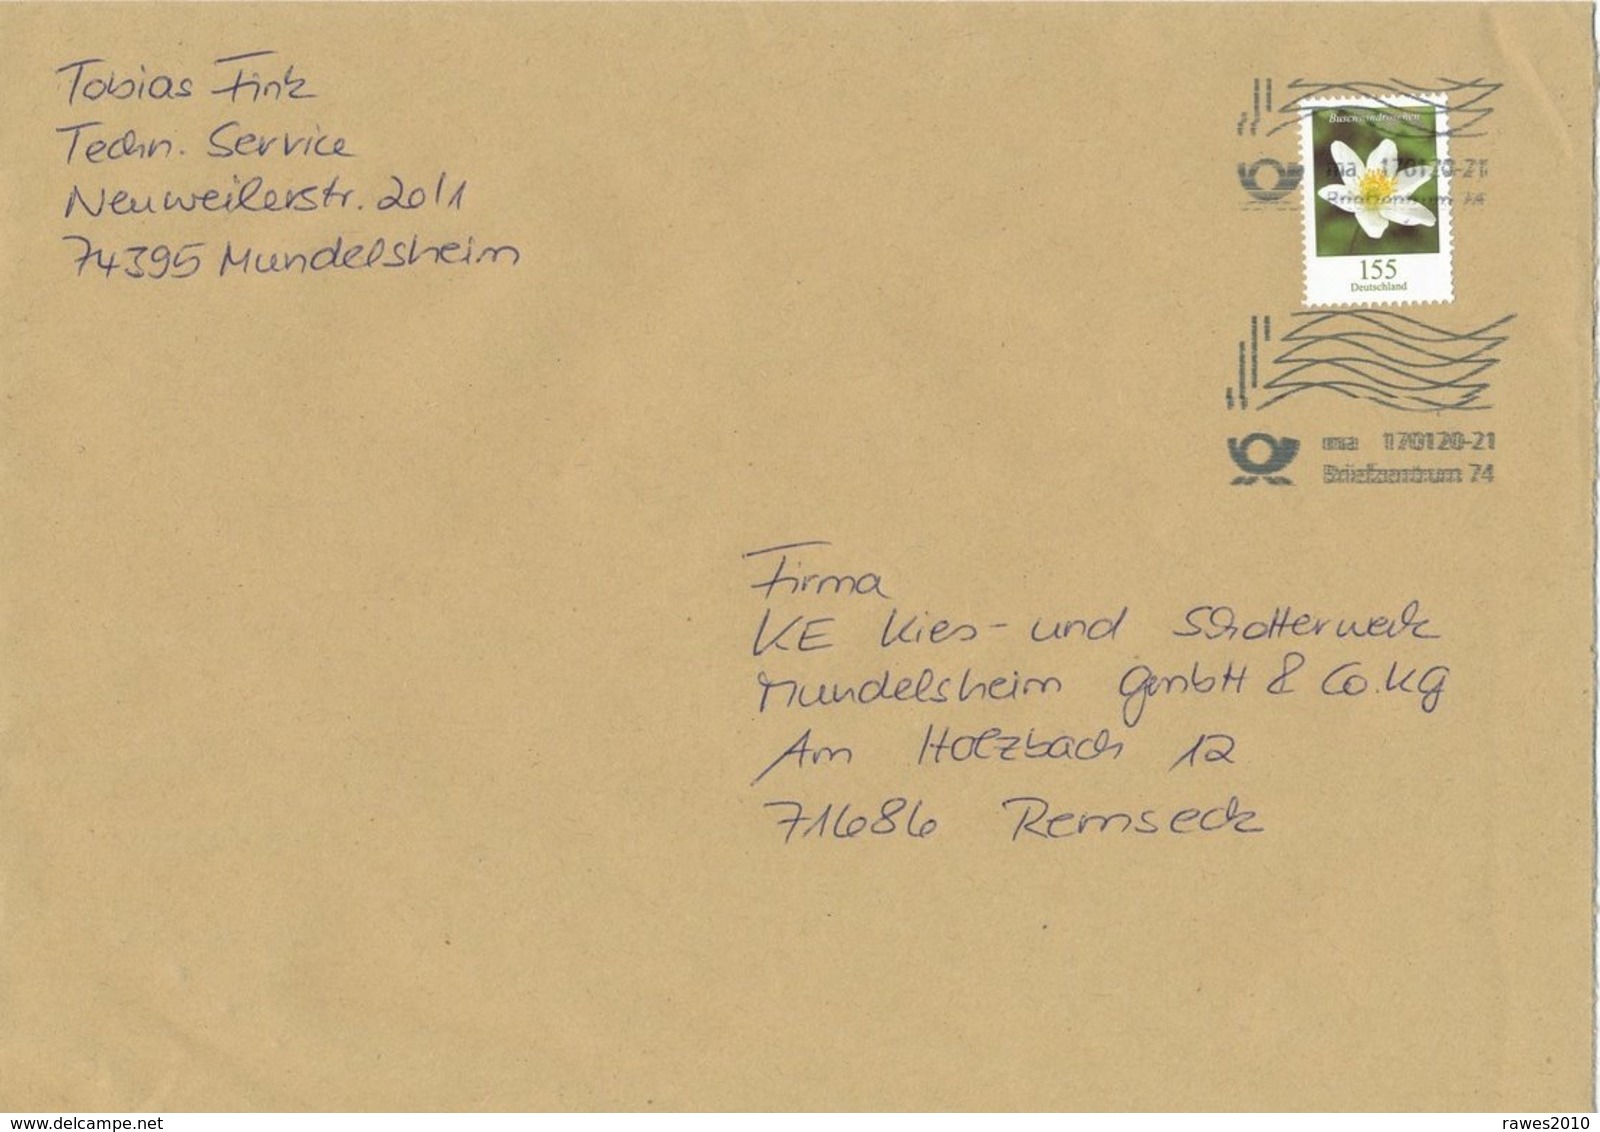 Tobias Fink
Techn. Service
Neuweilerstr. 20/1
74395 Mundelsheim
Buschwindröschen
155
Deutschland
ma 170120-21
Briefzentrum 74
ma 170120-21
Briefzentrum 74
Firma
KE Kies- und Schotterwerk
Mundelsheim GmbH & Co. KG
Am Holzbach 12
71686 Remseck
delcampe.net
rawes2010